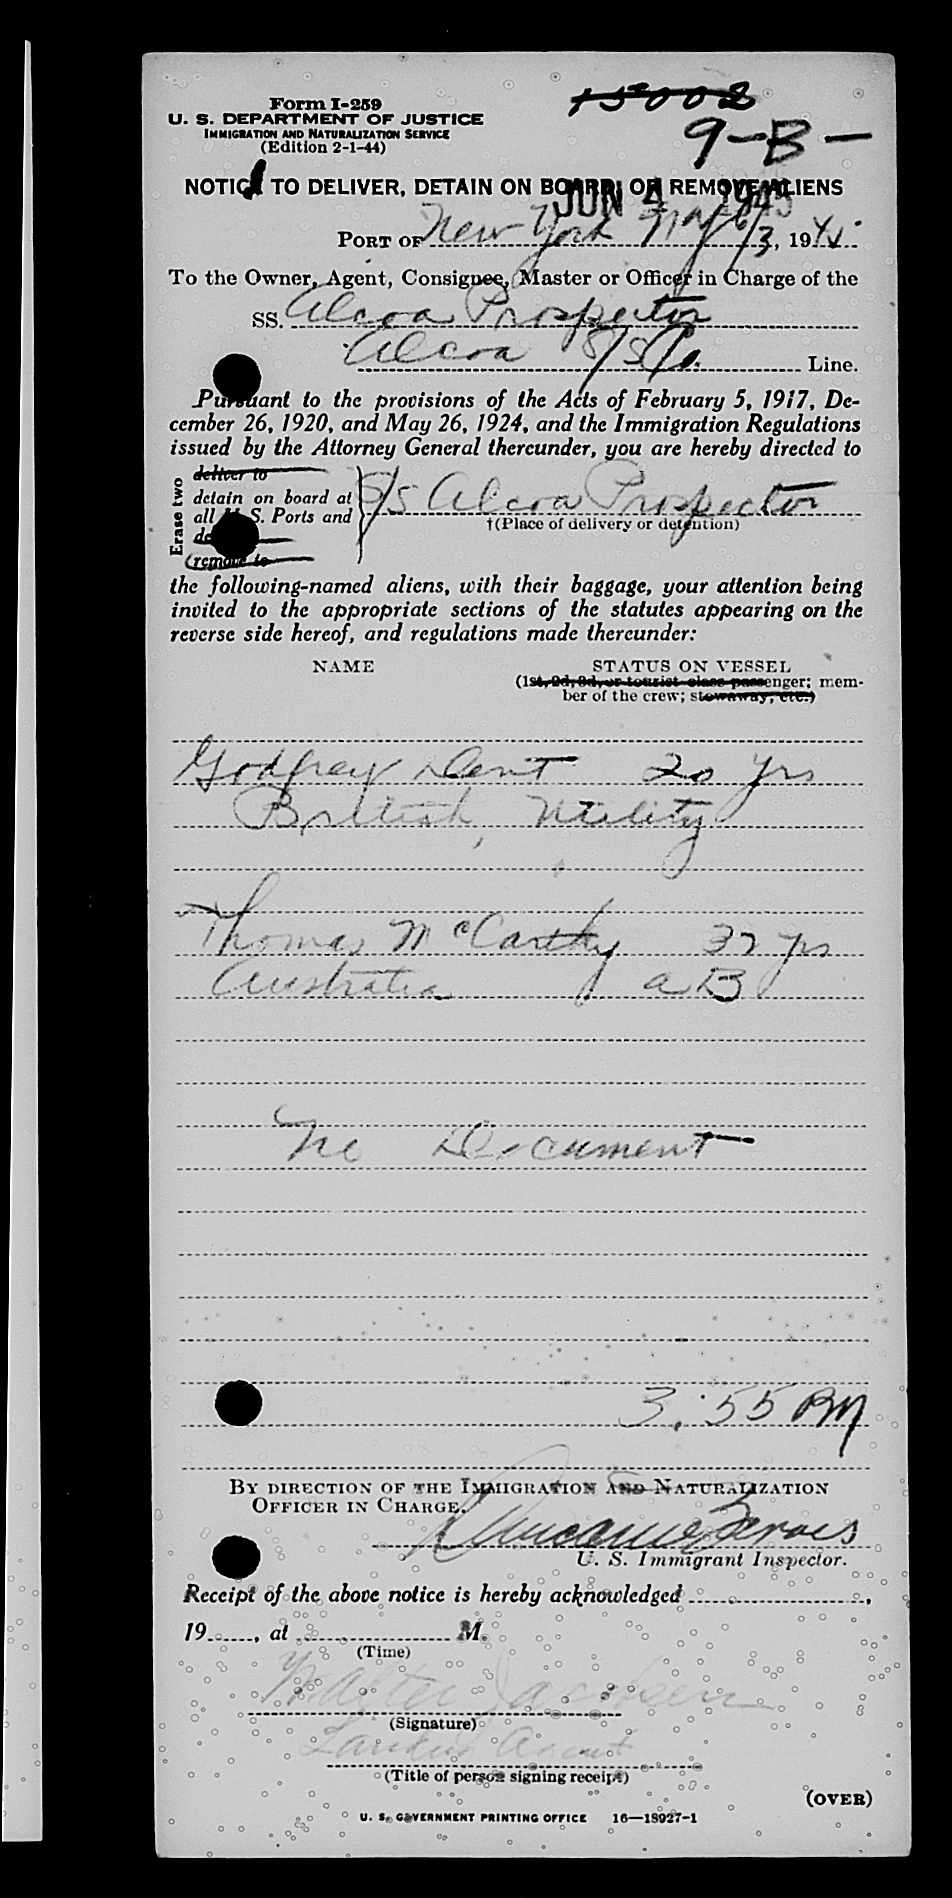 Form I-259
U. S. DEPARTMENT OF JUSTICE
IMMIGRATION AND NATURALIZATION SERVICE
(Edition 2-1-44)
15002
9-B-
NOTICE TO DELIVER, DETAIN ON BOARD, OR REMOVE ALIENS
JUN 4 1945
PORT OF New York May 3, 1945
To the Owner, Agent, Consignee, Master or Officer in Charge of the
SS. Alcoa Prospector
Alcoa S/S Co. Line.
Pursuant to the provisions of the Acts of February 5, 1917, De-
cember 26, 1920, and May 26, 1924, and the Immigration Regulations
issued by the Attorney General thereunder, you are hereby directed to
Erase two
deliver to
detain on board at
all U. S. Ports and
remove to
S/S Alcoa Prospector
†(Place of delivery or detention)
the following-named aliens, with their baggage, your attention being
invited to the appropriate sections of the statutes appearing on the
reverse side hereof, and regulations made thereunder:
NAME STATUS ON VESSEL
(1st, 2d, 3d, or tourist class passenger; mem-
ber of the crew; stowaway, etc.)
Godfrey Dent 20 yrs
British, Utility
Thomas McCarthy 37 yrs
Australia AB
No Document
3:55 PM
BY DIRECTION OF THE IMMIGRATION AND NATURALIZATION
OFFICER IN CHARGE.
U. S. Immigrant Inspector.
Receipt of the above notice is hereby acknowledged ,
19 , at M.
(Time)
Walter Jacobsen
(Signature)
Landing Agent
(Title of person signing receipt)
(OVER)
U. S. GOVERNMENT PRINTING OFFICE 16—18927-1